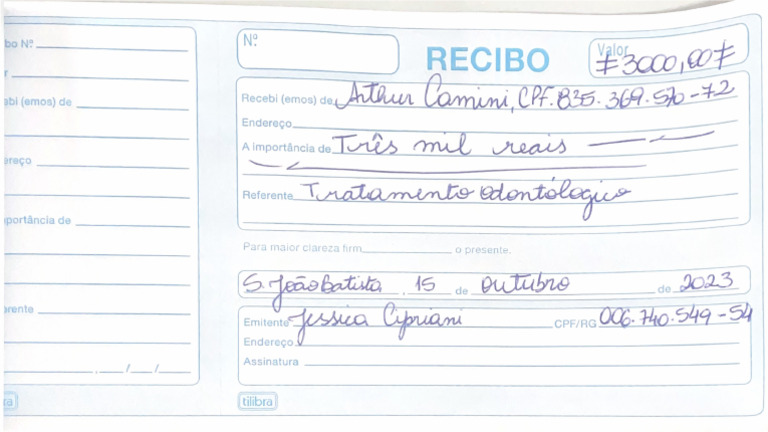 bo Nº
r
ebi (emos) de
ereço
portância de
erente
, / /
ra
Nº.
RECIBO
Valor
≠3000,00≠
Recebi (emos) de Arthur Camini, CPF. 835.369.570-72
Endereço
A importância de Três mil reais
Referente Tratamento Odontólogico
Para maior clareza firm o presente.
S. João Batista, 15 de outubro de 2023
Emitente Jessica Cipriani CPF/RG 006.740.549-54
Endereço
Assinatura
tilibra